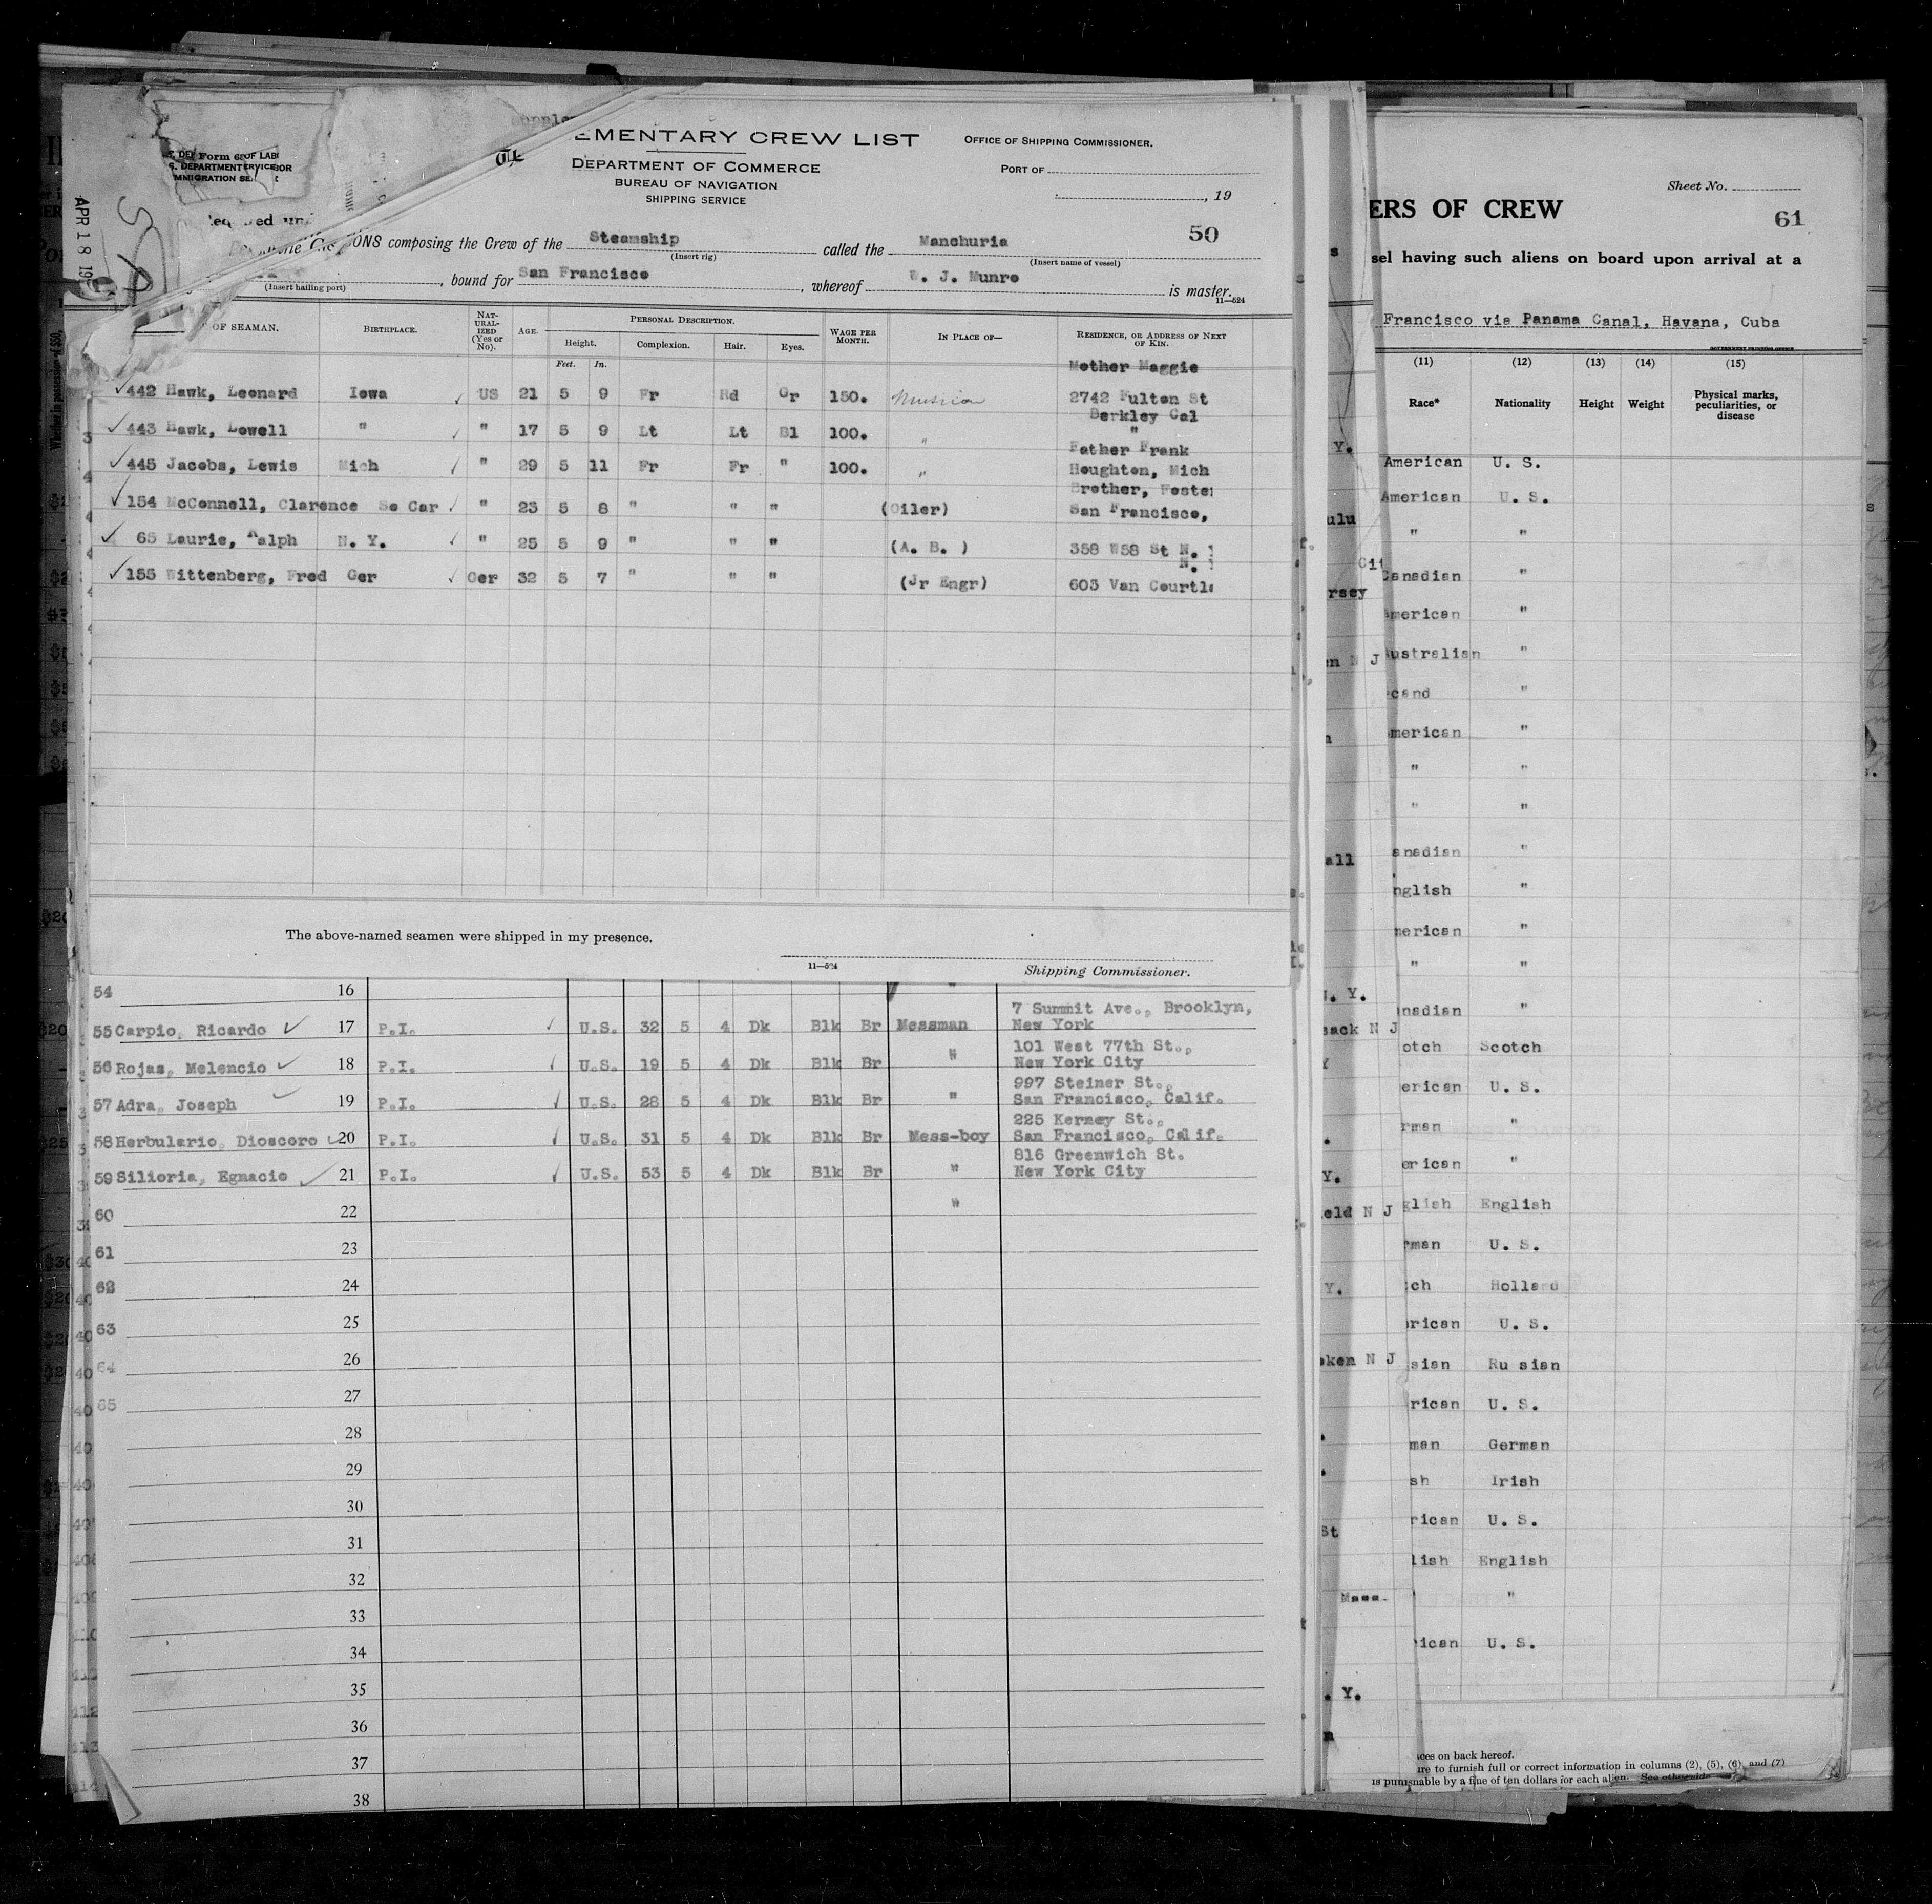 EMENTARY CREW LIST
DEPARTMENT OF COMMERCE
BUREAU OF NAVIGATION
SHIPPING SERVICE
OFFICE OF SHIPPING COMMISSIONER.
PORT OF
, 19
50
APR 18
ONS composing the Crew of the Steamship called the Manchuria
(Insert rig) (Insert name of vessel)
, bound for San Francisco, whereof W. J. Munro is master.
(Insert hailing port)
11—524
OF SEAMAN. BIRTHPLACE. NAT-URAL-IZED (Yes or No). AGE. PERSONAL DESCRIPTION. WAGE PER MONTH. IN PLACE OF— RESIDENCE, OR ADDRESS OF NEXT OF KIN.
Height. Complexion. Hair. Eyes.
Feet. In.
Mother Maggie
442 Hawk, Leonard Iowa US 21 5 9 Fr Rd Gr 150. Musician 2742 Fulton St
Berkley Cal
443 Hawk, Lowell " " 17 5 9 Lt Lt Bl 100. " "
Father Frank
445 Jacobs, Lewis Mich " 29 5 11 Fr Fr " 100. " Houghton, Mich
Brother, Foste
154 McConnell, Clarence So Car " 23 5 8 " " " (Oiler) San Francisco,
65 Laurie, Ralph N. Y. " 25 5 9 " " " (A. B. ) 358 W58 St N.
N.
155 Wittenberg, Fred Ger Ger 32 5 7 " " " (Jr Engr) 603 Van Courtl
The above-named seamen were shipped in my presence.
11—524
Shipping Commissioner.
54 16 "
7 Summit Ave., Brooklyn,
55 Carpio, Ricardo 17 P.I. U.S. 32 5 4 Dk Blk Br Messman New York
101 West 77th St.,
56 Rojas, Melencio 18 P.I. U.S. 19 5 4 Dk Blk Br " New York City
997 Steiner St.,
57 Adra, Joseph 19 P.I. U.S. 28 5 4 Dk Blk Br " San Francisco, Calif.
225 Kerney St.,
58 Herbulario, Dioscoro 20 P.I. U.S. 31 5 4 Dk Blk Br Mess-boy San Francisco, Calif.
816 Greenwich St.
59 Silioria, Egnacio 21 P.I. U.S. 53 5 4 Dk Blk Br " New York City
60 22 "
61 23
62 24
63 25
64 26
65 27
28
29
30
31
32
33
34
35
36
37
38
Sheet No.
ERS OF CREW
61
sel having such aliens on board upon arrival at a
Francisco via Panama Canal, Havana, Cuba
(11) (12) (13) (14) (15)
Race* Nationality Height Weight Physical marks, peculiarities, or disease
American U. S.
American U. S.
" "
Canadian "
merican "
ustralian "
cand "
merican "
" "
" "
anadian "
nglish "
merican "
" "
nadian "
otch Scotch
erican U. S.
rman "
erican "
glish English
rman U. S.
ch Holland
rican U. S.
sian Ru sian
rican U. S.
man German
sh Irish
rican U. S.
lish English
"
ican U. S.
ces on back hereof.
ure to furnish full or correct information in columns (2), (5), (6), and (7)
is punishable by a fine of ten dollars for each alien. See otherside